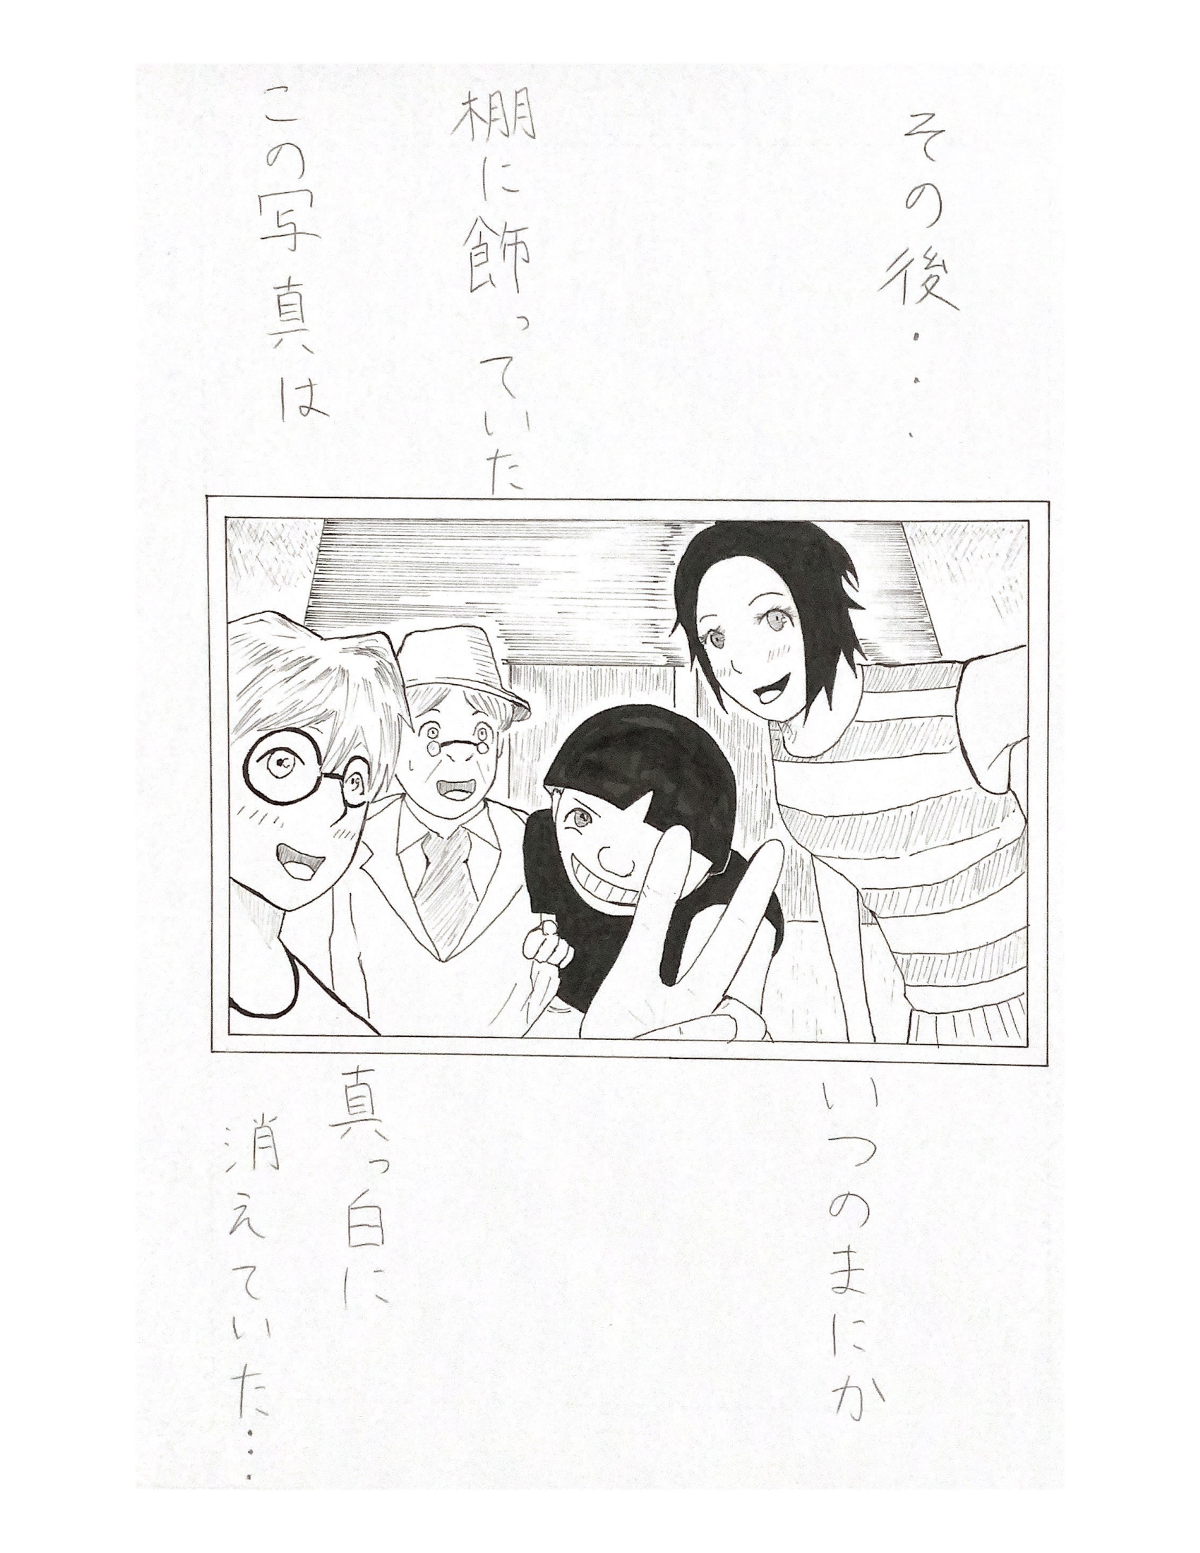 その後・・・
棚に飾っていた
この写真は
いつのまにか
真っ白に
消えていた…